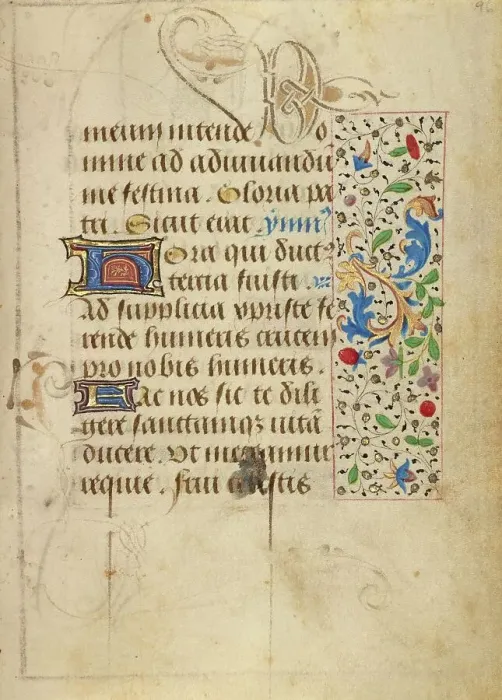 meum intende Do
mine ad adiuuandū
me festina . Gloria pa
tri . Sicut erat ymn⁹
Hora qui duct⁹
tercia fuisti
Ad supplicia xpriste fe
rende humeris crucem
pro nobis humeris .
Fac nos sic te dili
gere sanctamqꝫ uitā
ducere . Vt mereamur
requie . frui celestis